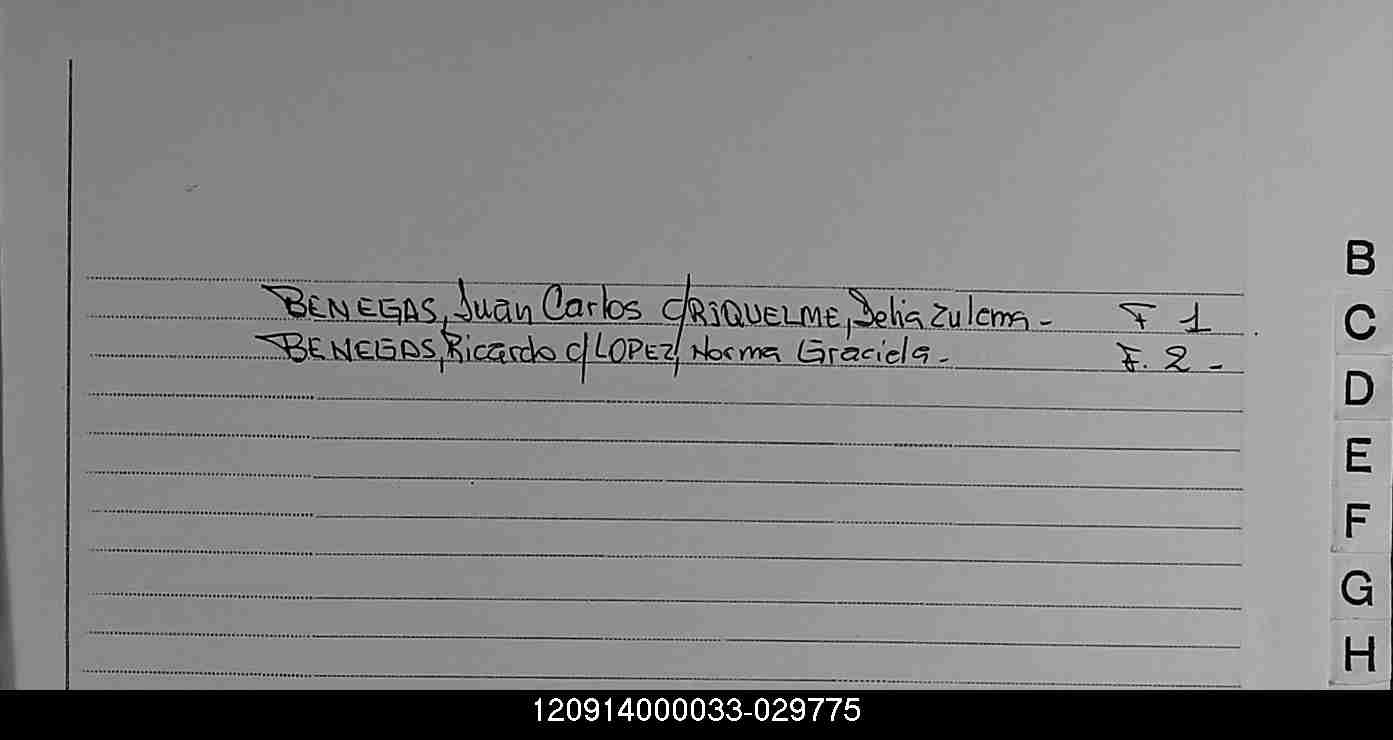 BENEGAS, Juan Carlos c/RIQUELME, Delia Zulema - F 1
BENEGAS, Ricardo c/LOPEZ, Norma Graciela - F. 2 -
B
C
D
E
F
G
H
120914000033-029775